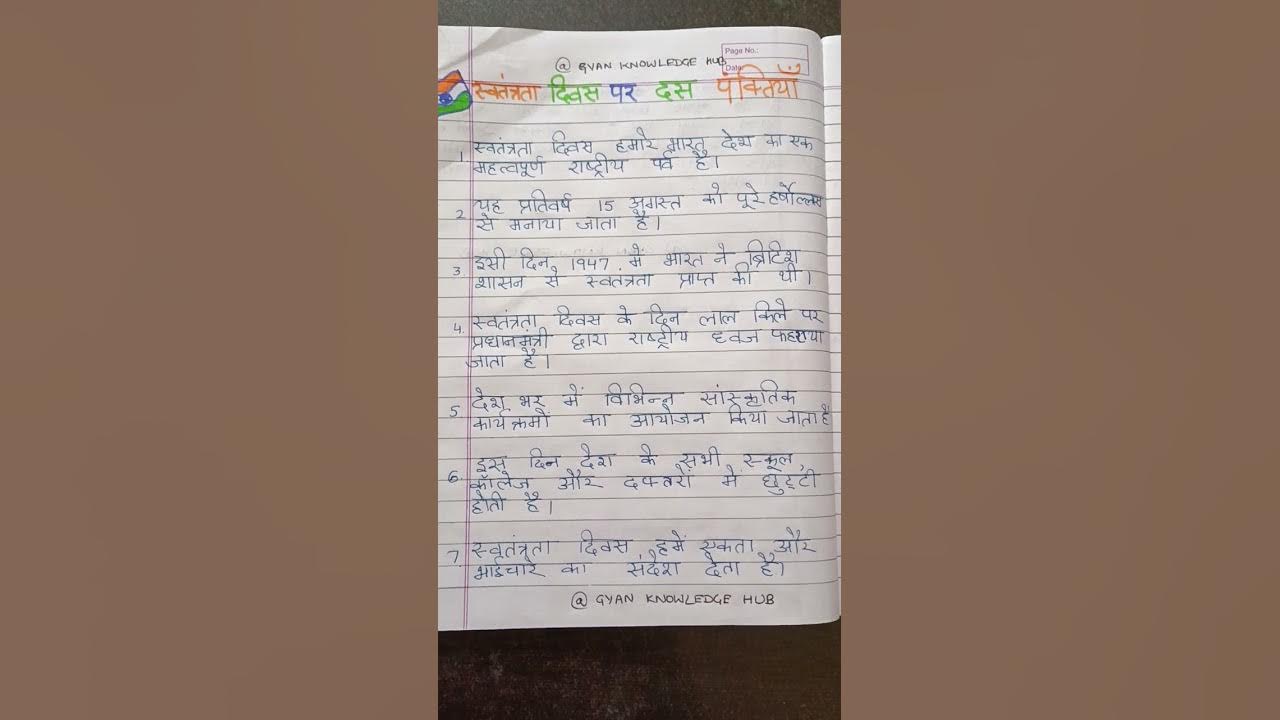 @ GYAN KNOWLEDGE HUB
Page No.:
Date
स्वतंत्रता दिवस पर दस पंक्तियाँ
1. स्वतंत्रता दिवस हमारे भारत देश का एक
महत्वपूर्ण राष्ट्रीय पर्व है।
2. यह प्रतिवर्ष 15 अगस्त को पूरे हर्षोल्लास
से मनाया जाता है।
3. इसी दिन 1947 में भारत ने ब्रिटिश
शासन से स्वतंत्रता प्राप्त की थी।
4. स्वतंत्रता दिवस के दिन लाल किले पर
प्रधानमंत्री द्वारा राष्ट्रीय ध्वज फहराया
जाता है।
5. देश भर में विभिन्न सांस्कृतिक
कार्यक्रमों का आयोजन किया जाता है
6. इस दिन देश के सभी स्कूल,
कॉलेज और दफ्तरों में छुट्टी
होती है।
7. स्वतंत्रता दिवस हमें एकता और
भाईचारे का संदेश देता है।
@ GYAN KNOWLEDGE HUB